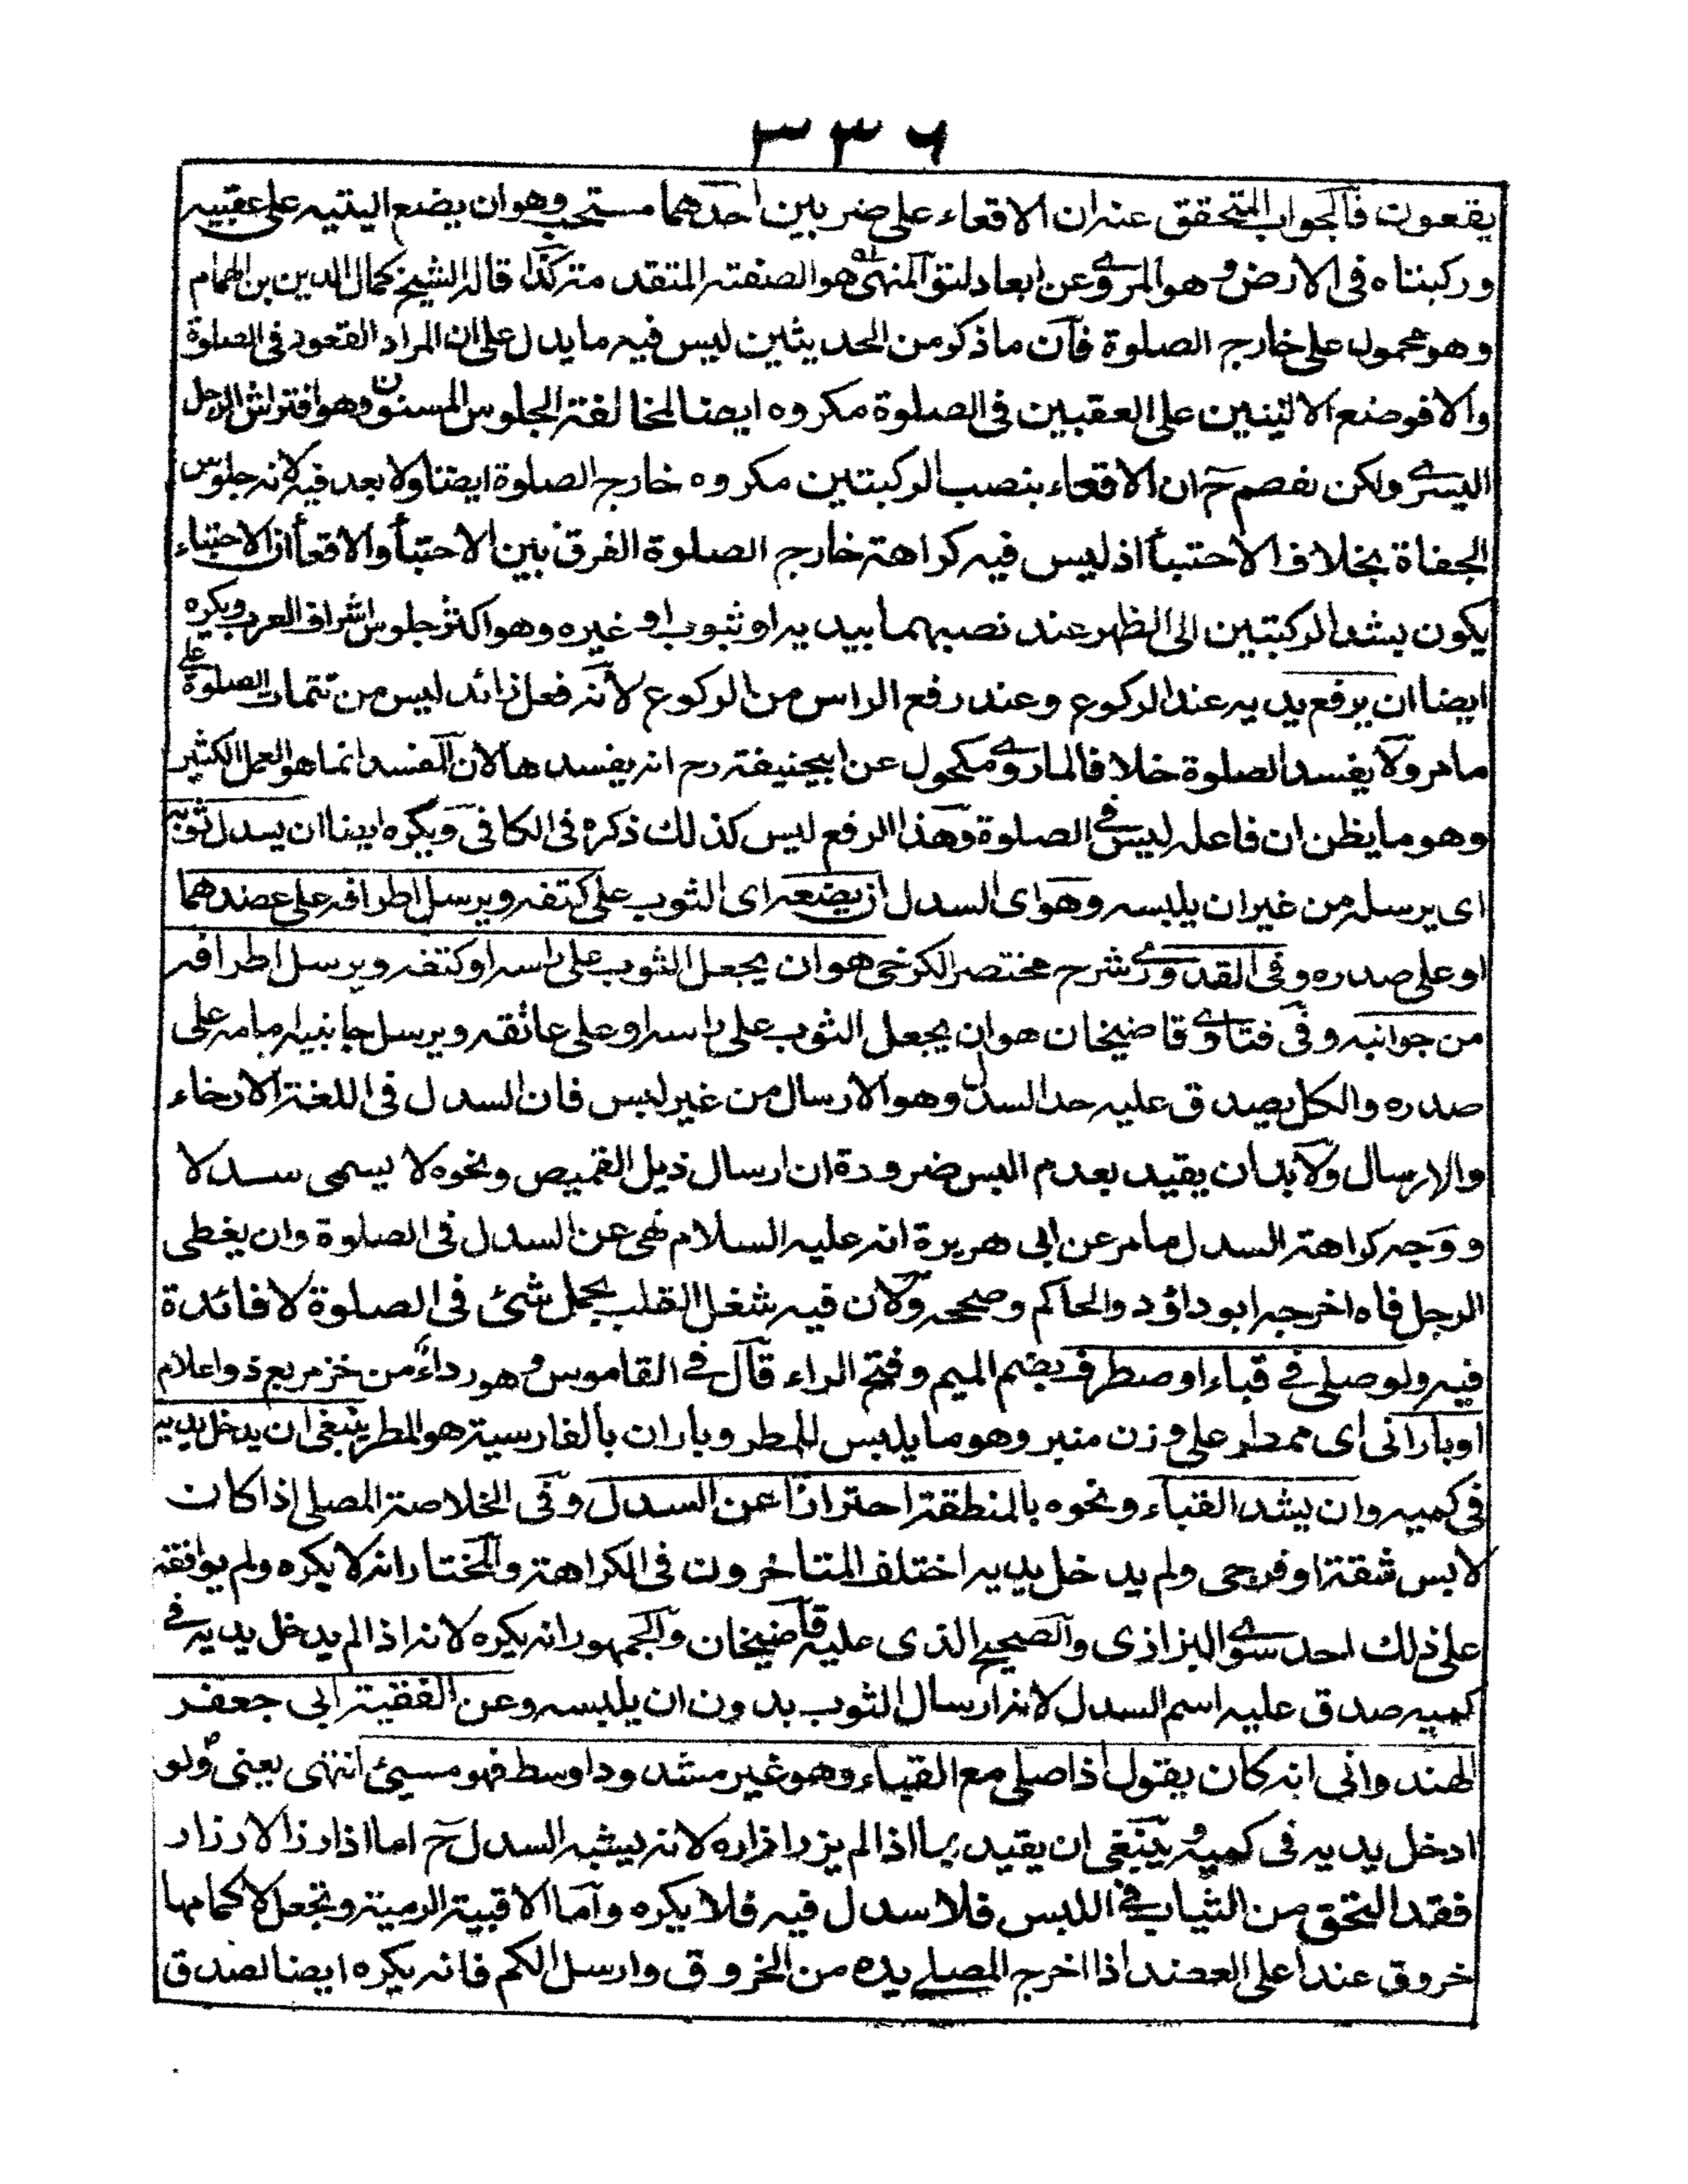 ٣٣٦
يقعون فالجواب المتحقق عنه ان الاقعاء على ضربين احدهما مستحب وهو ان يضع اليتيه على عقبيه
وركبتاه فى الارض وهو المروى عن العبادلة والمنهى هو الصفة المتقدمة كذا قاله الشيخ كمال الدين بن الهمام
وهو محمول على خارج الصلوة فان ما ذكر من الحديثين ليس فيه ما يدل على ان المراد القعود فى الصلوة
والا فوضع الاليتين على العقبين فى الصلوة مكروه ايضا لمخالفة الجلوس المسنون وهو افتراش الرجل
اليسرى ولكن ح ان الاقعاء بنصب الركبتين مكروه خارج الصلوة ايضا ولا بعد فيه لانه جلوس
الجفاة بخلاف الاحتبأ اذ ليس فيه كراهة خارج الصلوة الفرق بين الاحتبأ والاقعأ ان الاحتباء
يكون بشد الركبتين الى الظهر عند نصبهما بيديه او ثبوب او غيره وهو اكثر جلوس اشراف العرب ويكره
ايضا ان يرفع يديه عند الركوع وعند رفع الراس من الركوع لانه فعل زائد ليس من تتمات الصلوة على
ما مر ولا يفسد الصلوة خلافا لما روى مكحول عن ابيحنيفة رح انه يفسدها لان المفسد انما هو العمل الكثير
وهو ما يظن ان فاعله ليس فى الصلوة وهذا الرفع ليس كذلك ذكره فى الكافى ويكره ايضا ان يسدل ثوبه
اى يرسله من غير ان يلبسه وهو اى السدل ان يضعه اى الثوب على كتفه ويرسل اطرافه على عضدهما
او على صدره وفى القدورى شرح مختصر الكرخى هو ان يجعل الثوب على راسه او كتفه ويرسل اطرافه
من جوانبه وفى فتاوى قاضيخان هو ان يجعل الثوب على راسه او على عاتقه ويرسل جانبيه امامه على
صدره والكل يصدق عليه حد السدل وهو الارسال من غير لبس فان السدل فى اللغة الارخاء
والارسال ولابد ان يقيد بعدم البس ضرورة ان ارسال ذيل القميص ونحوه لا يسمى سدلا
ووجه كراهة السدل ما مر عن ابى هريرة انه عليه السلام نهى عن السدل فى الصلوة وان يغطى
الرجل فاه اخرجه ابو داؤد والحاكم وصححه ولان فيه شغل القلب بحمل شئ فى الصلوة لا فائدة
فيه ولو صلى فى قباء او مطرف بضم الميم وفتح الراء قال فى القاموس وهو رداء من خز مربع ذو اعلام
او بارانى اى ممطر على وزن منبر وهو ما يلبس للمطر وباران بالفارسية هو المطر ينبغى ان يدخل يديه
فى كميه وان يشد القباء ونحوه بالمنطقة احترازا عن السدل وفى الخلاصة المصلى اذا كان
لابس شقة او فرجى ولم يدخل يديه اختلف المتاخرون فى الكراهة والمختار انه لا يكره ولم يوافقه
على ذلك احد سوى البزازى والصحيح الذى عليه قاضيخان والجمهور انه يكره لانه اذا لم يدخل يديه فى
كميه صدق عليه اسم السدل لانه ارسال الثوب بدون ان يلبسه وعن الفقيه ابى جعفر
الهندوانى انه كان يقول اذا صلى مع القباء وهو غير مشدود اوسط فهو مسيئ انتهى يعنى ولو
ادخل يديه فى كميه وينبغى ان يقيد بما اذا لم يزر ازراره لانه يشبه السدل ح اما اذا زر الازرار
فقد التحق من الثياب فى اللبس فلا سدل فيه فلا يكره واما الاقبية الرمية ونجعل لاكمامها
خروق عند اعلى العضد اذا اخرج المصلى يده من الخروق وارسل الكم فانه يكره ايضا لصدق